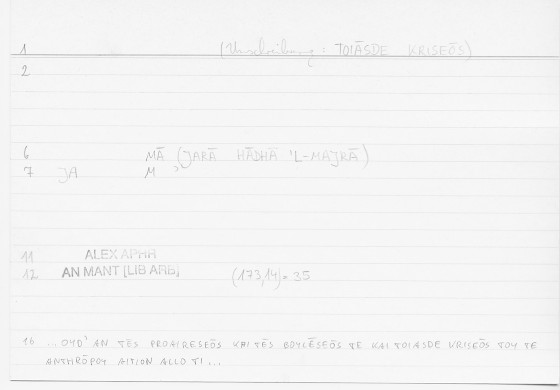 1 (Umschreibung: TOIĀSDE KRISEŌS)
2
6 MĀ (JARĀ HĀDHĀ 'L-MAJRĀ)
7 JA M ʾ
11 ALEX APHR
12 AN MANT [LIB ARB] (173,14) = 35
16 ...OYD' AN TĒS PROAIRESEŌS KAI TĒS BOYLĒSEŌS TE KAI TOIASDE KRISEŌS TOY TE
ANTHRŌPOY AITION ALLO TI...